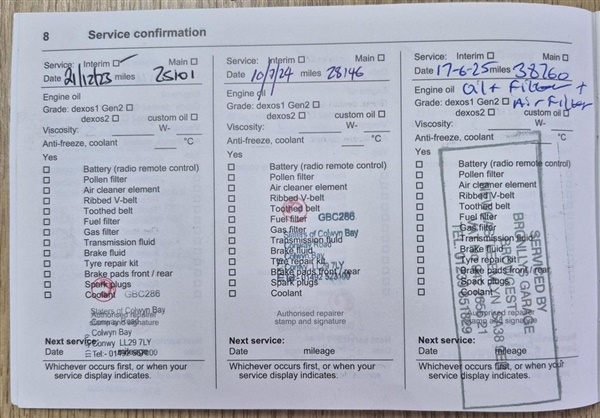 8 Service confirmation
Service: Interim ☐ Main ☐
Date 21/12/23 miles 25101
Engine oil
Grade: dexos1 Gen2 ☐
dexos2 ☐ custom oil ☐
Viscosity: W-
Anti-freeze, coolant °C
Yes
☐ Battery (radio remote control)
☐ Pollen filter
☐ Air cleaner element
☐ Ribbed V-belt
☐ Toothed belt
☐ Fuel filter
☐ Gas filter
☐ Transmission fluid
☐ Brake fluid
☐ Tyre repair kit
☐ Brake pads front / rear
☐ Spark plugs
☐ Coolant GBC286
Authorised repairer
stamp and signature
Slaters of Colwyn Bay
Conway Road
Colwyn Bay
Conwy LL29 7LY
Tel:-
Next service:
Date mileage
Whichever occurs first, or when your
service display indicates.
Service: Interim ☐ Main ☐
Date 10/7/24 miles 28146
Engine oil
Grade: dexos1 Gen2 ☐
dexos2 ☐ custom oil ☐
Viscosity: W-
Anti-freeze, coolant °C
Yes
☐ Battery (radio remote control)
☐ Pollen filter
☐ Air cleaner element
☐ Ribbed V-belt
☐ Toothed belt
☐ Fuel filter GBC286
☐ Gas filter
☐ Transmission fluid
☐ Brake fluid
☐ Tyre repair kit
☐ Brake pads front / rear
☐ Spark plugs
☐ Coolant
Slaters of Colwyn Bay
Conway Road
Colwyn Bay
Conwy LL29 7LY
Tel:- 01492 523100
Authorised repairer
stamp and signature
Next service:
Date mileage
Whichever occurs first, or when your
service display indicates.
Service: Interim ☐ Main ☐
Date 17-6-25 miles 38260
Engine oil Oil + Filter +
Grade: dexos1 Gen2 ☐ Air Filter
dexos2 ☐ custom oil ☐
Viscosity: W-
Anti-freeze, coolant °C
Yes
☐ Battery (radio remote control)
☐ Pollen filter
☐ Air cleaner element
☐ Ribbed V-belt
☐ Toothed belt
☐ Fuel filter
☐ Gas filter
☐ Transmission fluid
☐ Brake fluid
☐ Tyre repair kit
☐ Brake pads front / rear
☐ Spark plugs
☐ Coolant
SERVICED BY
GARAGE
Authorised repairer
stamp and signature
Next service:
Date mileage
Whichever occurs first, or when your
service display indicates.